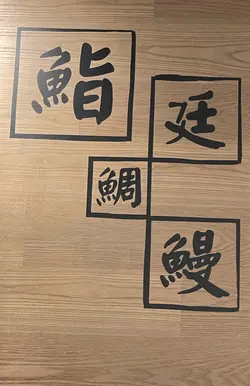 鮨
廷
鯛
鰻